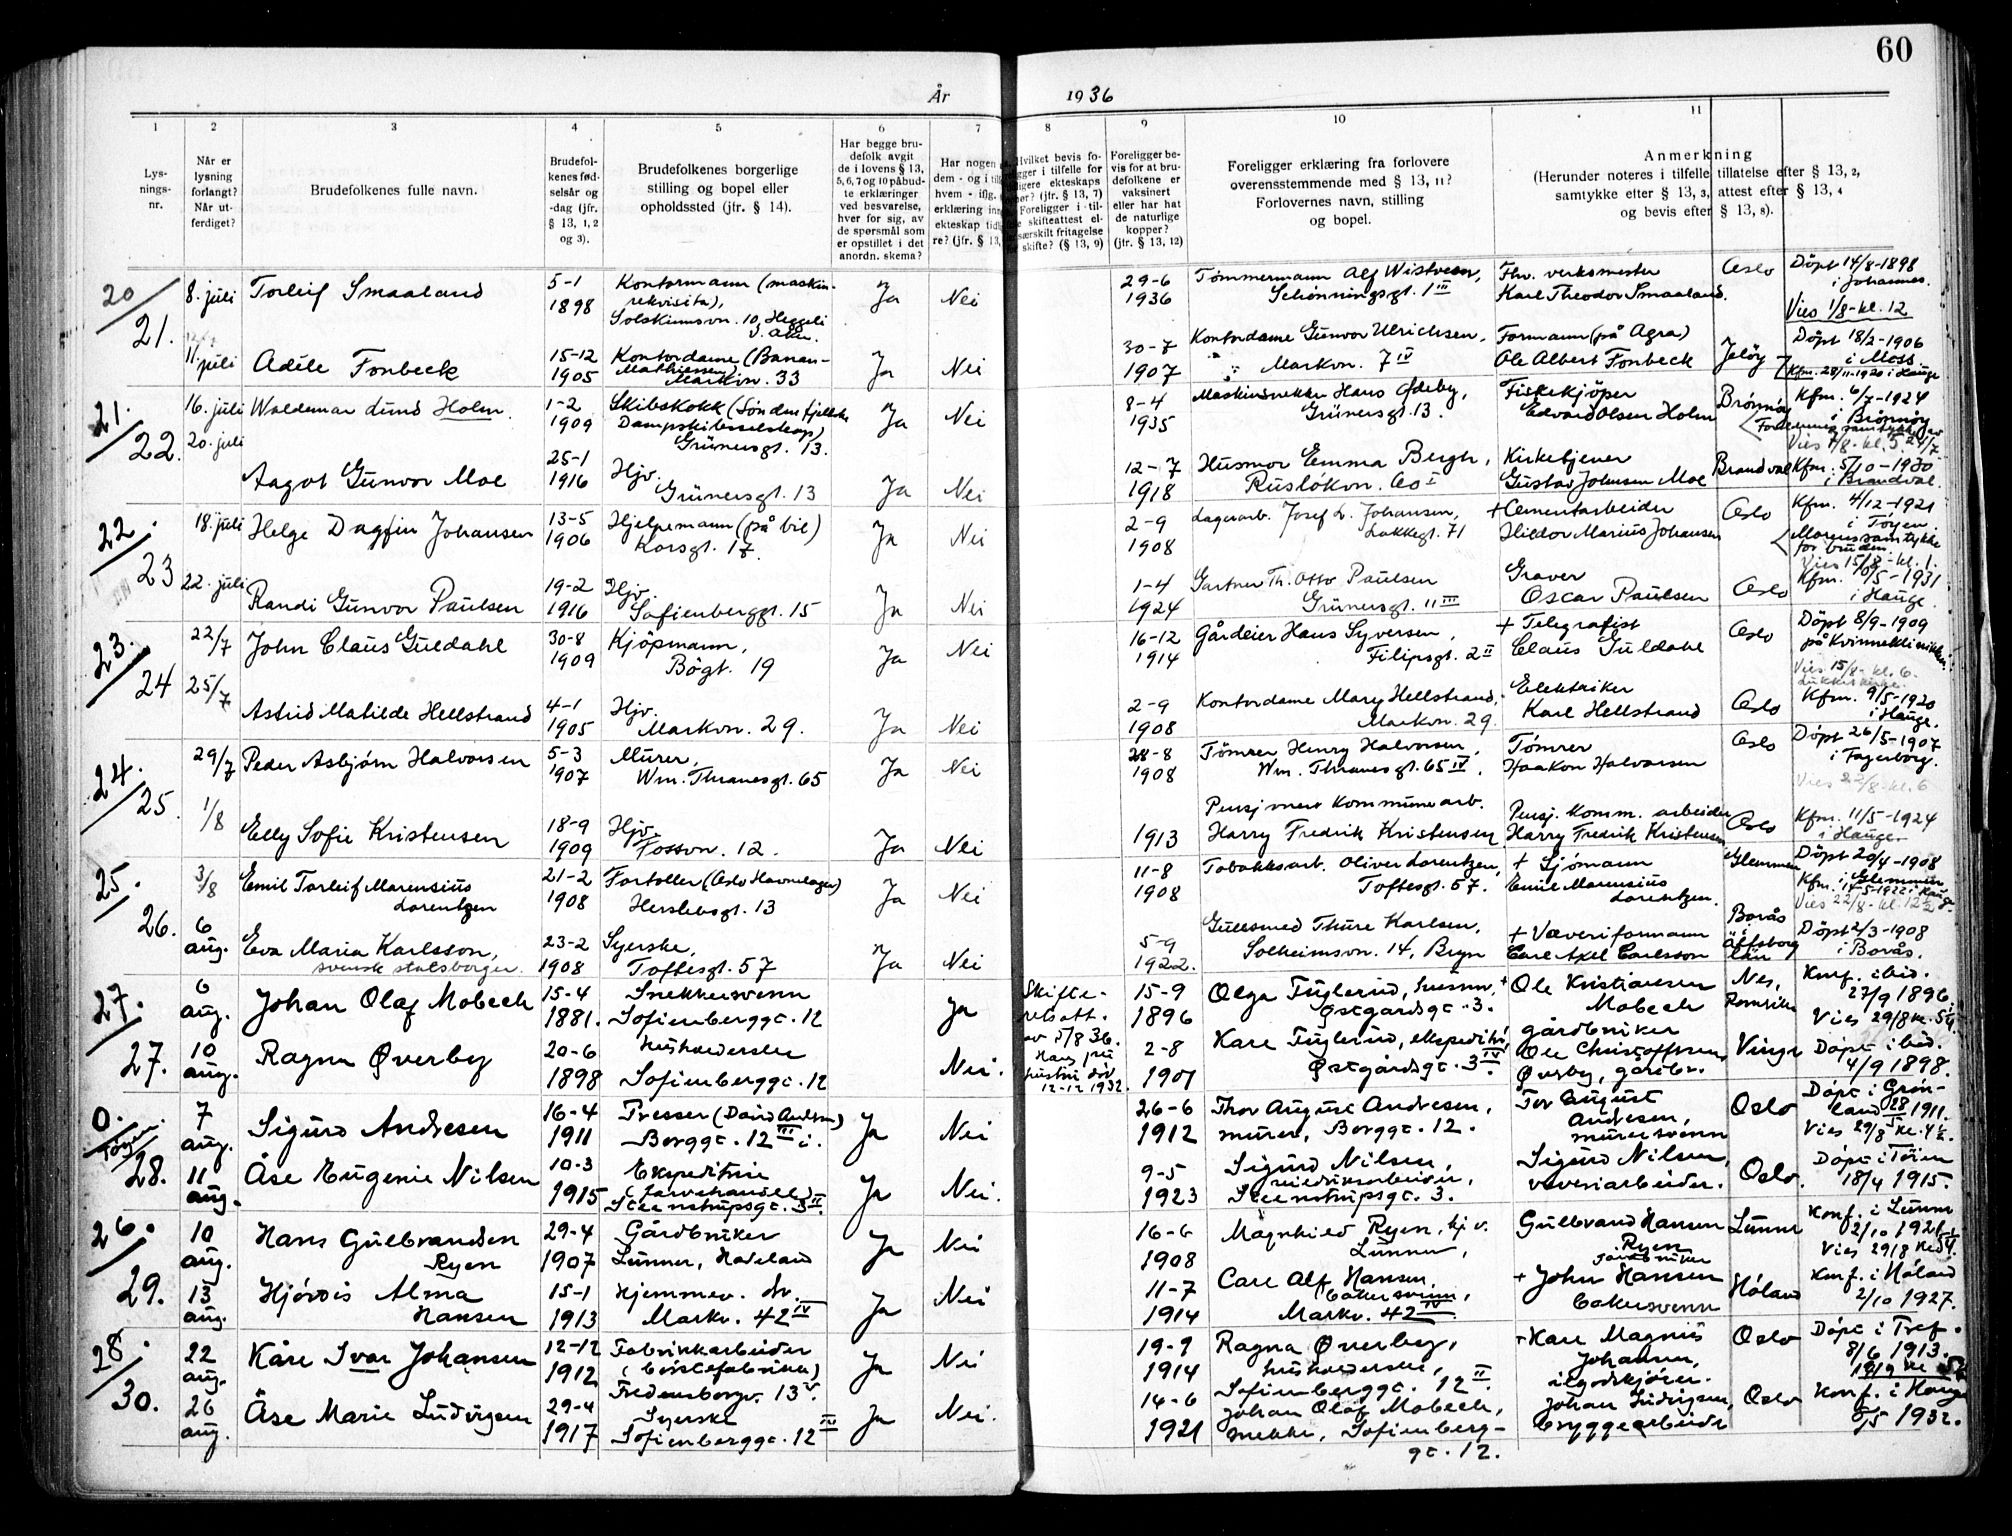 60
År 1936
1 2 3 4 5 6 7 8 9 10 11
Lys-
nings-
nr.
Når er
lysning
forlangt?
Når ut-
ferdiget?
Brudefolkenes fulle navn.
Brudefol-
kenes fød-
selsår og
-dag (jfr.
§ 13, 1, 2
og 3).
Brudefolkenes borgerlige
stilling og bopel eller
opholdssted (jfr. § 14).
Har begge bru-
defolk avgit
de i lovens § 13,
5, 6, 7 og 10 påbud-
te erklæringer
ved besvarelse,
hver for sig, av
de spørsmål som
er opstillet i det
anordn. skema?
Har nogen
dem - og i
hvem - iflg.
erklæring
ekteskap
re? (jfr. § 13,
Hvilket bevis fo-
ligger i tilfelle for
ekteskaps
(§ 13, 7)
Foreligger i til-
skifteattest el-
særskilt fritagelse
skifte? (§ 13, 9)
Foreligger be-
vis for at bru-
defolkene er
vaksinert
eller har hat
de naturlige
kopper?
(jfr. § 13, 12)
Foreligger erklæring fra forlovere
overensstemmende med § 13, 11?
Forlovernes navn, stilling
og bopel.
Anmerkning
(Herunder noteres i tilfelle tillatelse efter § 13, 2,
samtykke efter § 13, 3, attest efter § 13, 4
og bevis efter § 13, 8).
20/21. 8. juli Torleif Smaaland 5-1 1898 Kontormann (maskin-
rekvisita),
Solskinnsvn. 10, Heggeli
Ja Nei 29-6 1936 Tømmermann Alf
Schønningsgt. 1 III
Fhv. verksmester
Karl Theodor Smaaland.
Oslo Døpt 14/8-1898
i Johannes.
Vies 1/8-kl. 12
11. juli Adéle Fonbeck 15-12 1905 Kontordame (Banan-
Mathiessen)
Markvn. 33
Ja Nei 30-7 1907 Kontordame Gunvor Ulrichsen,
Markvn. 7 IV
Formann (på Agra)
Ole Albert Fonbeck Jeløy
Døpt 18/2-1906
i Moss.
Kfm. 28/11-1920 i Hauge
21./22. 16. juli Waldemar Lund Holm. 1-2 1909 Skibskokk (Søndenfjellske
Dampskibsselskap)
Grünersgt. 13.
Ja Nei 8-4 1935 Maskinsnekker Hans Ødeby,
Grünersgt. 13.
Fiskekjøper
Edvard Olsen Holm Brønnøy
Kfm. 6/7-1924
i Brønnøy
20. juli Aagot Gunvor Moe 25-1 1916 Hjv.
Grünersgt. 13
Ja Nei 12-7 1918 Husmor Emma Bergh,
Ruseløkvn. 60 I
Kirketjener
Gustav Johnsen Moe Brandval
Kfm. 5/10-1930
i Brandval.
22./23 18. juli Helge Dagfin Johansen 13-5 1906 Hjelpemann (på bil)
Korsgt. 17.
Ja Nei 2-9 1908 Lagerarb. Josef L. Johansen,
Lakkegt. 71
+ Cementarbeider
Hildor Marius Johansen Oslo
Kfm. 4/12-1921
i Tøyen.
Morens samtykke
for bruden.
Vies 15/8-kl. 1.
22. juli Randi Gunvor Paulsen 19-2 1916 Hjv.
Sofienberggt. 15
Ja Nei 1-4 1924 Gartner Th. Otto Paulsen
Grünersgt. 11 III
Graver
Oscar Paulsen Oslo
Kfm. 10/5-1931
i Hauge.
23./24 22/7 John Claus Guldahl 30-8 1909 Kjøpmann,
Bögt. 19
Ja Nei 16-12 1914 Gårdeier Hans Syversen,
Filipsgt. 2 II
+ Telegrafist
Claus Guldahl Oslo
Døpt 8/9-1909
på Kvinneklinikken
Vies 15/8-kl. 6.
25/7 Astrid Matilde Hellstrand 4-1 1905 Hjv.
Markvn. 29.
Ja Nei 2-9 1908 Kontordame Mary Hellstrand,
Markvn. 29.
Elektriker
Karl Hellstrand Oslo
Kfm. 9/5-1920
i Hauge.
24./25. 29/7 Peder Asbjørn Halvorsen 5-3 1907 Murer,
Wm. Thranesgt. 65
Ja Nei 28-8 1908 Tømrer Henry Halvorsen,
Wm. Thranesgt. 65 IV.
Tømrer
Haakon Halvorsen Oslo
Døpt 26/5-1907
i Fagerborg.
Vies 22/8-kl. 6
1/8 Elly Sofie Kristensen 18-9 1909 Hjv.
Fossvn. 12.
Ja Nei 1913 Pensjonert kommunearb.
Harry Fredrik Kristensen
Pensj. komm. arbeider
Harry Fredrik Kristensen Oslo
Kfm. 11/5-1924
i Hauge.
25./26. 3/8 Emil Torleif Marensius
Lorentzen 21-2 1908 Fortoller (Oslo Havnelager)
Herslebsgt. 13
Ja Nei 11-8 1908 Tobakksarb. Oliver Lorentzen,
Toftesgt. 57.
+ Sjømann
Emil Marensius
Lorentzen. Glemmen
Døpt 20/4-1908
i Glemmen
Kfm. 14/5-1922 i Hauge
Vies 22/8-kl. 12 1/2
6 aug. Eva Maria Karlsson,
svensk statsborger. 23-2 1908 Syerske,
Toftesgt. 57
Ja Nei 5-9 1922. Gullsmed Thure Karlsen,
Solheimsvn. 14, Bryn
+ Væveriformann
Carl Axel Carlsson
Borås
i
Älfsborg
län
Døpt 2/3-1908
i Borås.
27./27. 6 aug. Johan Olaf Mobech 15-4 1881. Snekkersvenn
Sofienberggt. 12
Ja Skifte-
rets att.
av 5/8 36.
Hans fru
hustru død
12-12 1932.
15-9 1896 Olga Fuglerud, husm.,
Østgårdsgt. 3.
+ Ole Kristiansen
Mobech
gårdbruker
Nes, Romerike
Konf. ibid.
27/9 1896.
Vies 29/8 kl. 5 1/4.
10 aug. Ragna Øverby 20-6 1898 Husholderske
Sofienberggt. 12
Nei. 2-8 1901 Kare Fuglerud, ekspeditør,
Østgårdsgt. 3 IV
Ole Christoffersen
Øverby, gårdbr. Vinger
Døpt ibid.
4/9 1898.
0. Tøyen/28. 7 aug. Sigurd Andresen 16-4 1911 Presser (David Andersen)
Borggt. 12 III i.
Ja Nei 26-6 1912 Thor August Andresen,
murer, Borggt. 12.
Tor August
Andresen,
murersvenn Oslo
Døpt i Grøn-
land 28/5 1911.
Vies 29/8 kl. 4 1/2.
11 aug. Åse Eugenie Nilsen 10-3 1915 Ekspeditrise
(farvehandel)
Steenstrupsgt. 3 II.
Ja Nei. 9-5 1923 Sigurd Nilsen,
veveriarbeider,
Steenstrupsgt. 3.
Sigurd Nilsen,
veveriarbeider. Oslo.
Døpt i Tøien
18/4 1915.
26./29. 10 aug. Hans Gulbrandsen
Ryen 29-4 1907 Gårdbruker
Lunner, Hadeland
Ja Nei 16-6 1908 Magnhild Ryen, hjv.
Lunner,
Gulbrand Hansen
Ryen
gårdbruker Lunner
Konf. i Lunner
2/10 1921.
13 aug. Hjørdis Alma
Hansen 15-1 1913 Hjemmev. dr.
Markv. 42 IV
Ja Nei 11-7 1914 Carl Alf Hansen,
bakersvenn,
Markv. 42 IV
+ John Hansen
bakersvenn Høland
Konf. i Høland
2/10 1927.
28./30. 22 aug. Kåre Ivar Johansen 12-12 1912 Fabrikkarbeider
(børstefabrikk)
Fredensborgv. 13 V.
Ja Nei 19-9 1914 Ragna Øverby,
husholderske,
Sofienberggt. 12 II.
+ Kare Magnus
Johansen,
ilgodskjører. Oslo
Døpt i Tref.
8/6 1913.
26 aug. Åse Marie Ludvigsen 29-4 1917 Syerske
Sofienberggt. 12 IV
Ja Nei. 14-6 1921 Johan Olaf Mobech,
snekker, Sofienberg-
gt. 12.
Johan Ludvigsen,
bryggearbeider Oslo
Konf. i Hauge
8/5 1932.